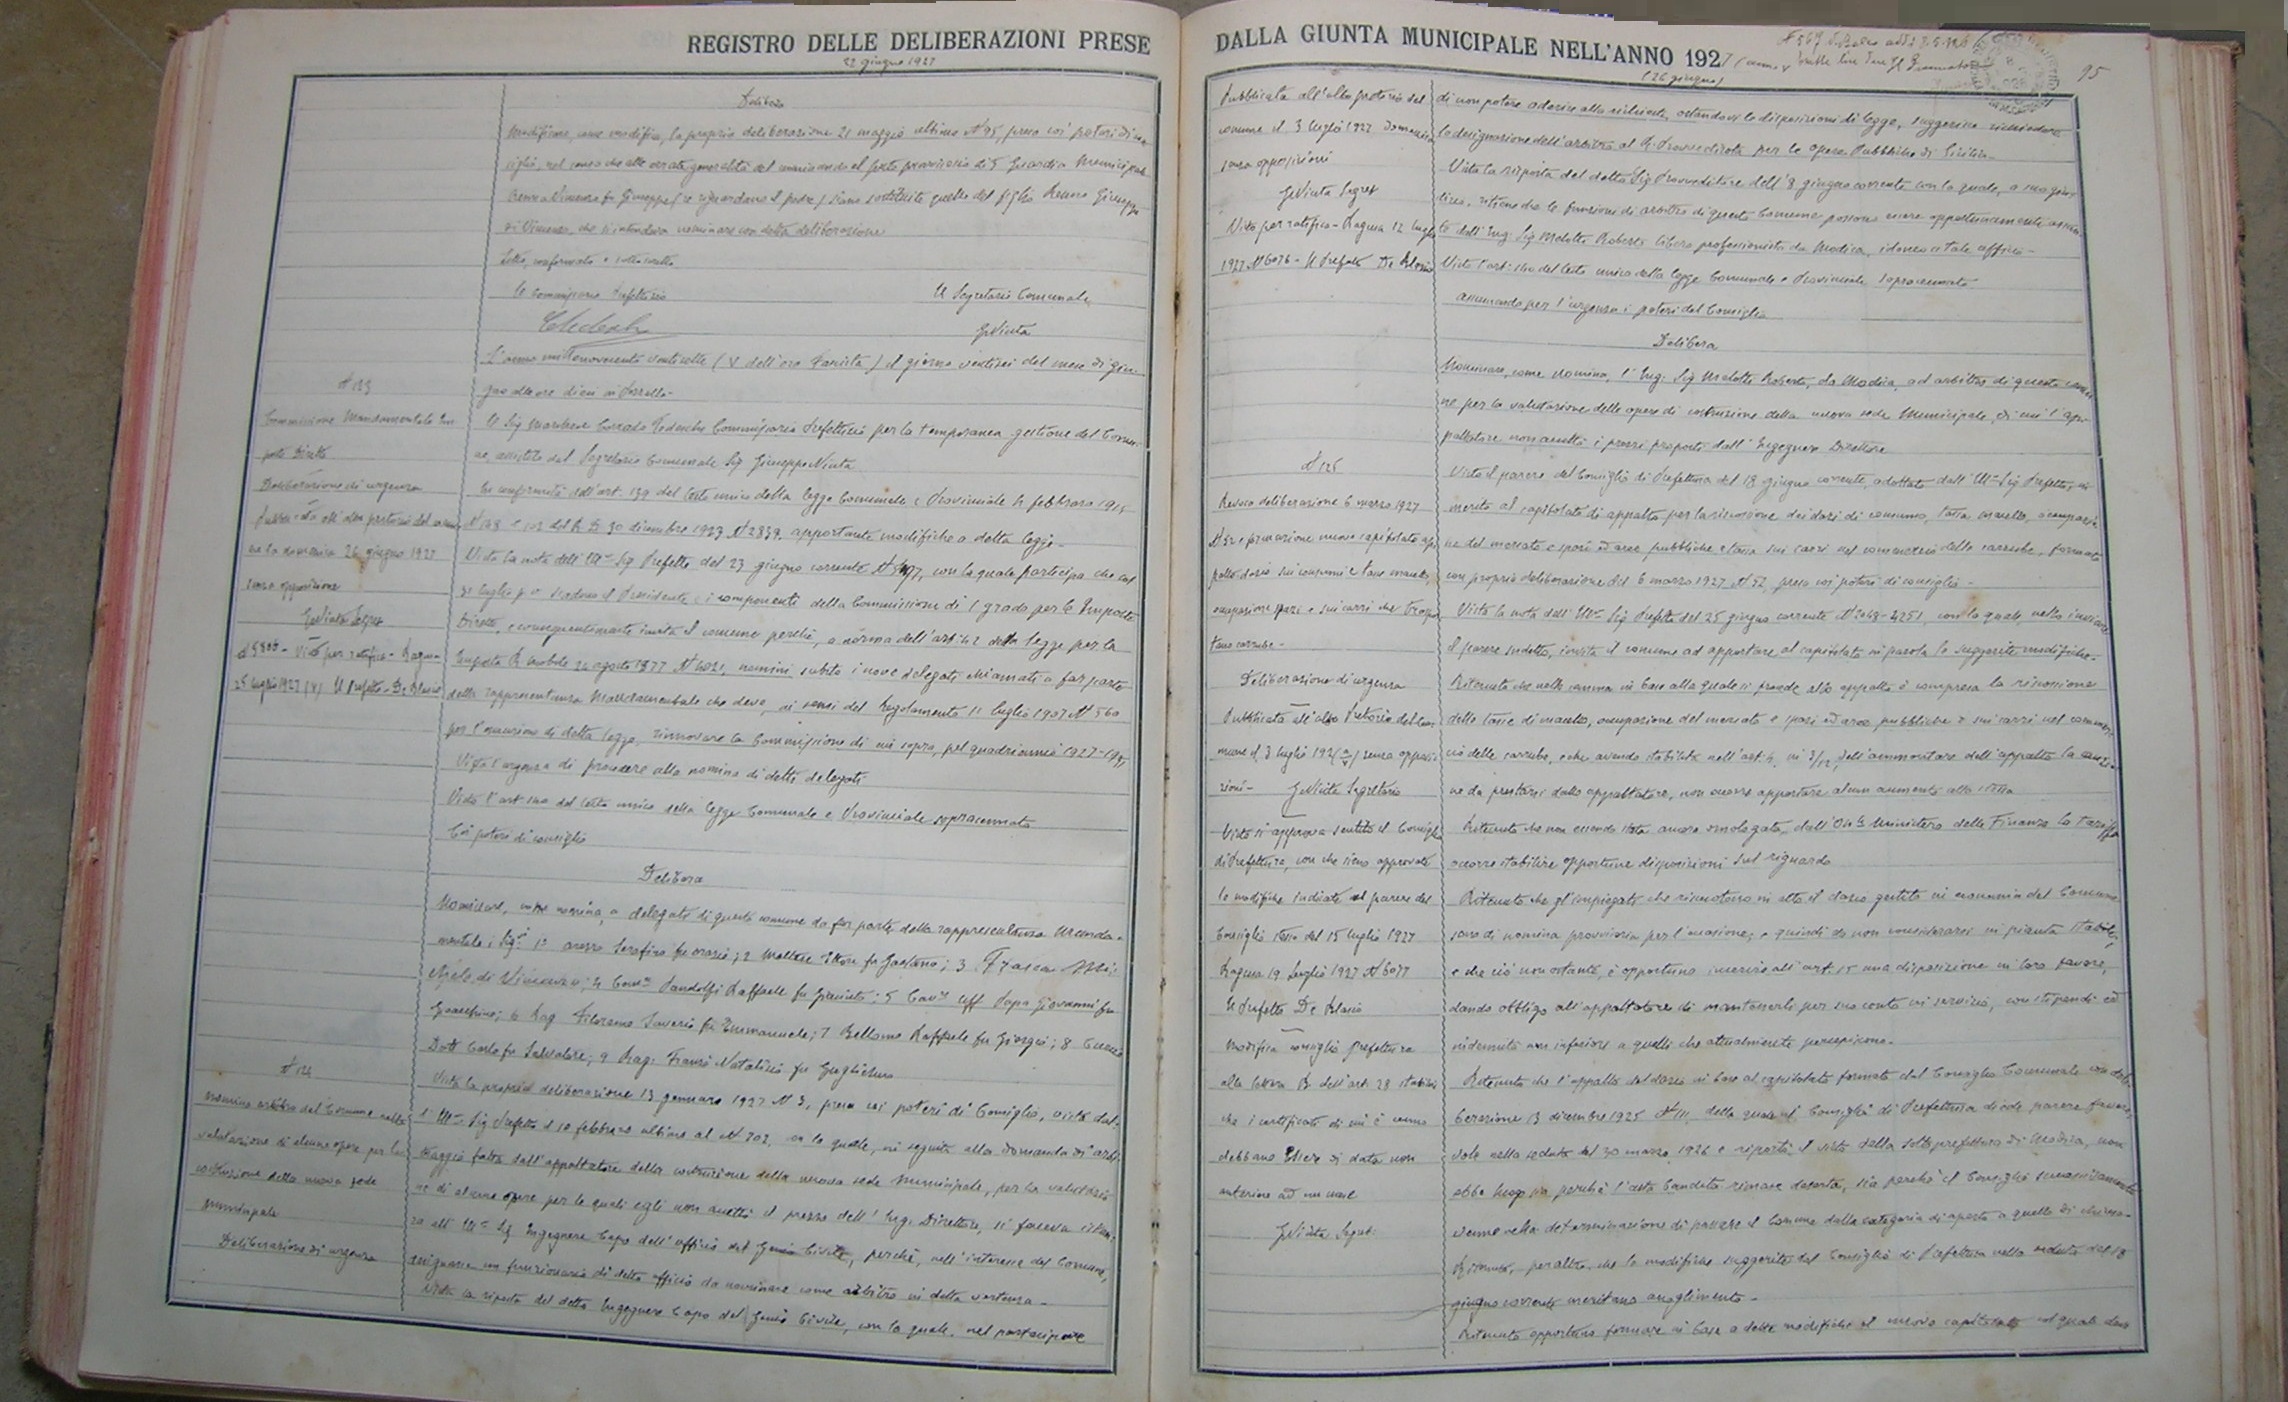 REGISTRO DELLE DELIBERAZIONI PRESE
22 giugno 1927
Delibera
modificare, come modifica, la propria deliberazione 21 maggio ultimo N 95, presa coi poteri di con-
siglio, nel senso che alle errate generalità del nominando al posto provvisorio di 5 Guardia Municipale
Vincenzo fu Giuseppe (e riguardano il padre) siano sostituite quelle del figlio Giuseppe
di Vincenzo, che s'intendeva nominare con detta deliberazione
Letto, confermato e sottoscritto
Il Commissario Prefettizio Il Segretario Comunale
GNiuta
L'anno millenovecento ventisette (V dell'era Fascista) il giorno ventisei del mese di giu-
gno alle ore dieci in
N 123
Commissione Mandamentale Im-
poste Dirette
Deliberazione di urgenza
Pubblicata all'albo pretorio del comu-
ne la domenica 26 giugno 1927
senza opposizione
GNiuta Segret
Visto per ratifica - Ragusa
25 luglio 1927 (V) Il Prefetto - De Blasio
Il Sig Marchese Corrado Tedeschi Commissario Prefettizio per la temporanea gestione del Comu-
ne, assistito dal Segretario Comunale Sig Giuseppe Niuta
In conformità dell'art. 139 del testo unico della legge Comunale e Provinciale 4 febbraio 1915
N 148 e 102 del R D 30 dicembre 1923 N 2839, apportante modifiche a detta legge -
Vista la nota dell'Ill.mo Sig Prefetto del 23 giugno corrente, con la quale partecipa che col
31 luglio p.o scadono il Presidente e i componenti della Commissione di 1 grado per le Imposte
Dirette, e conseguentemente invita il comune perchè, a norma dell'art. 42 della legge per la
Imposta R Mobile 24 agosto 1877 N 4021, nomini subito i nove delegati chiamati a far parte
della rappresentanza Mandamentale che deve, ai sensi del Regolamento 11 luglio 1907 N 560
per l'esecuzione di detta legge, rinnovare la Commissione di cui sopra, pel quadriennio 1927-1931
Vista l'urgenza di procedere alla nomina di detti delegati
Visto l'art 140 del testo unico della legge Comunale e Provinciale sopracennato
Coi poteri di consiglio
Delibera
Nominare, come nomina, a delegati di questo comune da far parte della rappresentanza Manda-
mentale i Sig.ri 1° Serafino fu Orazio; 2 Ettore fu Gaetano; 3 Frasca Mi-
chele di Vincenzo; 4 Pandolfi Raffaele fu; 5 Papa Giovanni fu
Gioacchino; 6 Rag Filoramo Saverio fu Emmanuele; 7 Bellomo Raffaele fu Giorgio; 8
Dott Carlo fu Salvatore; 9 Rag: Natalizio fu Guglielmo
N 124
Nomina arbitro del Comune nella
valutazione di alcune opere per la
costruzione della nuova sede
municipale
Deliberazione di urgenza
Vista la propria deliberazione 13 gennaro 1927 N 3, presa coi poteri di Consiglio, vista dal-
l'Ill.mo Sig Prefetto il 10 febbraio ultimo al N 702, con la quale, in seguito alla domanda di arbi-
traggio fatta dall'appaltatore della costruzione della nuova sede Municipale, per la valutazio
ne di alcune opere per le quali egli non accettò il prezzo dell'Ing. Direttore, si faceva istan-
za all'Ill.mo Sig Ingegnere Capo dell'officio del Genio Civile, perchè, nell'interesse del Comune,
un funzionario di detto officio da nominare come arbitro in detta vertenza -
Vista la risposta del detto Ingegnere Capo del Genio Civile, con la quale, nel partecipare
DALLA GIUNTA MUNICIPALE NELL'ANNO 1927
(26 giugno)
95
Pubblicata all'albo pretorio del
comune il 3 luglio 1927 Domenica
senza opposizioni
GNiuta Segret
Visto per ratifica - Ragusa 12 luglio
1927 N 6076 - Il Prefetto De Blasio
di non potere aderire alla richiesta, ostandovi le disposizioni di legge, suggerisce richiedere
la designazione dell'arbitro al R. Provveditorato per le opere Pubbliche di Sicilia -
Vista la risposta del detto Sig Provveditore dell'8 giugno corrente con la quale, a suo giu-
dizio, ritiene che le funzioni di arbitro di questo Comune possono essere opportunamente assun-
te dall'Ing. Sig Roberto libero professionista da Modica, idoneo a tale afficio -
Visto l'art. 140 del testo unico della legge Comunale e Provinciale sopracennato
assumendo per l'urgenza i poteri del Consiglio
Delibera
Nominare, come nomina, l'Ing. Sig Roberto, da Modica, ad arbitro di questo comu-
ne per la valutazione delle opere di costruzione della nuova sede Municipale, di cui l'ap-
paltatore non accettò i prezzi proposti dall'Ingegnere Direttore
N 125
Revoca deliberazione 6 marzo 1927
N 52 e formazione nuovo capitolato ap-
palto dazio sui consumi e tasse macello,
occupazione spazi e sui carri che traspor
tano carrube -
Deliberazione di urgenza
Pubblicata all'albo Pretorio del Co-
mune il 3 luglio 1927 senza opposi-
zioni -
GNiuta Segretario
Visto si approva sentito il Consiglio
di Prefettura, con che siano approvate
le modifiche indicate nel parere del
Consiglio stesso del 15 luglio 1927
Ragusa 19 Luglio 1927 N 6077
Il Prefetto De Blasio
Modifica consiglio prefettura
alla lettera B dell'art. 28 stabilis
che i certificati di cui è cenno
debbano essere di data non
anteriore ad un mese
GNiuta Segret.
Visto il parere del Consiglio di Prefettura del 18 giugno corrente, adottato dall'Ill.mo Sig Prefetto, in
merito al capitolato di appalto per la riscossione dei dazi di consumo, tassa macello, occupazio-
ne del mercato e spazi ed aree pubbliche e tassa sui carri nel commercio delle carrube, formato
con propria deliberazione del 6 marzo 1927 N 52, presa coi poteri di consiglio -
Vista la nota dell'Ill.mo Sig Prefetto del 25 giugno corrente N 2048-4251, con la quale, nello inviare
il parere sudetto, invita il comune ad apportare al capitolato in parola le suggerite modifiche -
Ritenuto che nella somma in base alla quale si procede allo appalto è compresa la riscossione
delle tasse di macello, occupazione del mercato e spazi ed aree pubbliche e sui carri nel commer-
cio delle carrube, e che avendo stabilita nell'art. 4, in 3/12 dell'ammontare dell'appalto la cauzio-
ne da prestarsi dallo appaltatore, non occorre apportare alcun aumento alla stessa
Ritenuto che non essendo stata ancora omologata, dall'On.le Ministero delle Finanze la tariffa
occorre stabilire opportune disposizioni sul riguardo
Ritenuto che gl'impiegati che riscuotono in atto il dazio gestito in economia dal Comune
sono di nomina provvisoria per l'occasione; e quindi da non considerarsi in pianta stabile,
e che ciò nonostante, è opportuno inserire all'art. 15 una disposizione in loro favore,
dando obbligo all'appaltatore di mantenerli per suo conto in servizio, con stipendi ed
indennità non inferiori a quelli che attualmente percepiscono -
Ritenuto che l'appalto del dazio in base al capitolato formato dal Consiglio Comunale con deli-
berazione 13 dicembre 1925 N 111, della quale il Consiglio di Prefettura diede parere favore
vole nella seduta del 30 marzo 1926 e riportò il visto della sottoprefettura di Modica, non
ebbe luogo sia perchè l'asta bandita rimase deserta, sia perchè il Consiglio successivamente
venne nella determinazione di passare il Comune dalla categoria di aperto a quello di chiuso -
Ritenuto, peraltro, che le modifiche suggerite dal Consiglio di Prefettura nella seduta del 18
giugno corrente meritano accoglimento -
Ritenuto opportuno formare in base a dette modifiche il nuovo capitolato